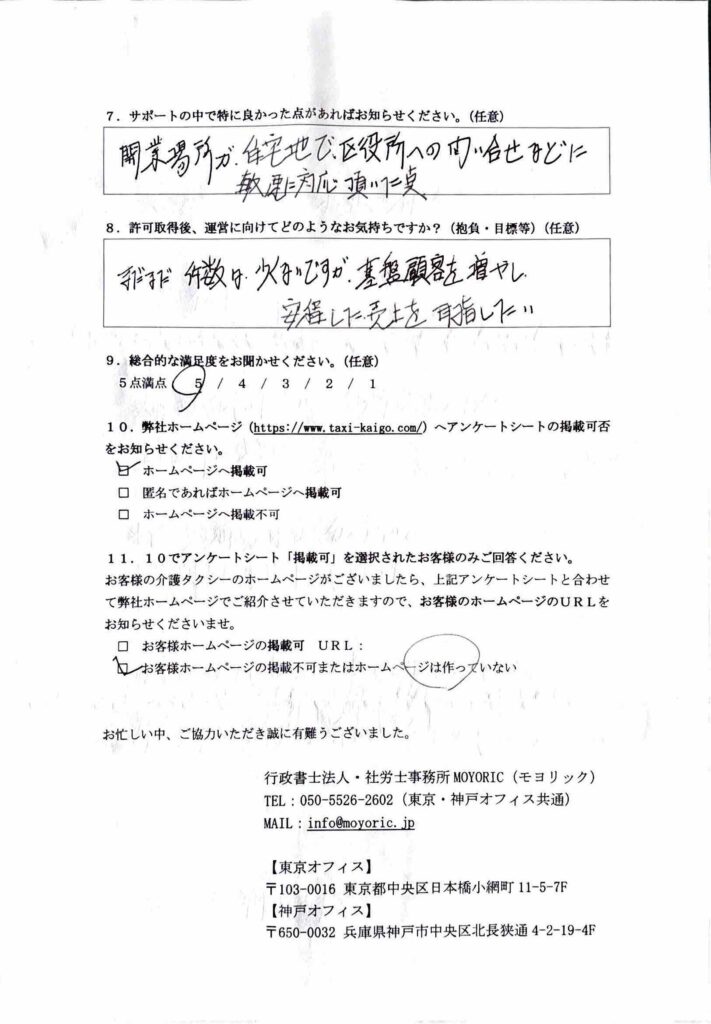 ７．サポートの中で特に良かった点があればお知らせください。（任意）
開業場所が、住宅地で、区役所への問い合せなどに
敏速に対応頂いた点
８．許可取得後、運営に向けてどのようなお気持ちですか？（抱負・目標等）（任意）
まだまだ件数は、少ないですが、基盤顧客を増やし、
安定した売上を目指したい
９．総合的な満足度をお聞かせください。（任意）
５点満点　5 / 4 / 3 / 2 / 1
１０．弊社ホームページ（https://www.taxi-kaigo.com/）へアンケートシートの掲載可否
をお知らせください。
☑ ホームページへ掲載可
□ 匿名であればホームページへ掲載可
□ ホームページへ掲載不可
１１．１０でアンケートシート「掲載可」を選択されたお客様のみご回答ください。
お客様の介護タクシーのホームページがございましたら、上記アンケートシートと合わせ
て弊社ホームページでご紹介させていただきますので、お客様のホームページのＵＲＬを
お知らせくださいませ。
□ お客様ホームページの掲載可　ＵＲＬ：
☑ お客様ホームページの掲載不可またはホームページは作っていない
お忙しい中、ご協力いただき誠に有難うございました。
行政書士法人・社労士事務所 MOYORIC（モヨリック）
TEL：050-5526-2602（東京・神戸オフィス共通）
MAIL：info@moyoric.jp
【東京オフィス】
〒103-0016 東京都中央区日本橋小網町 11-5-7F
【神戸オフィス】
〒650-0032 兵庫県神戸市中央区北長狭通 4-2-19-4F